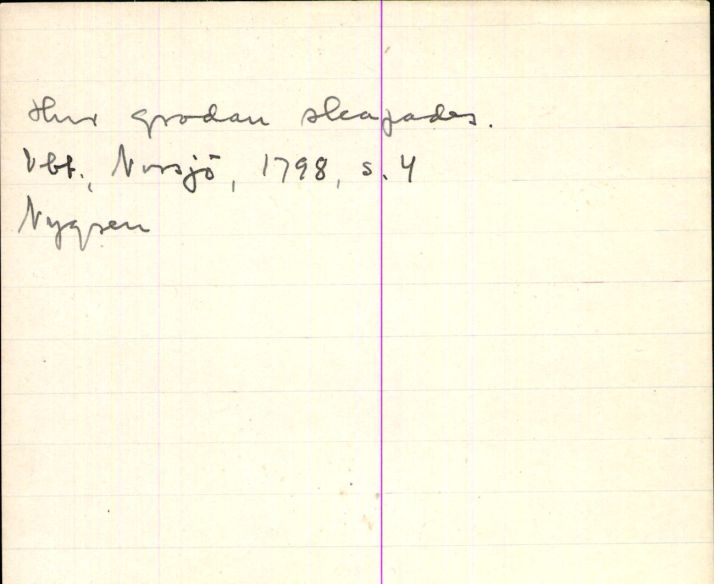 Hur grodan skapades.
Vbt., Norsjö, 1798, s. 4
Nygren